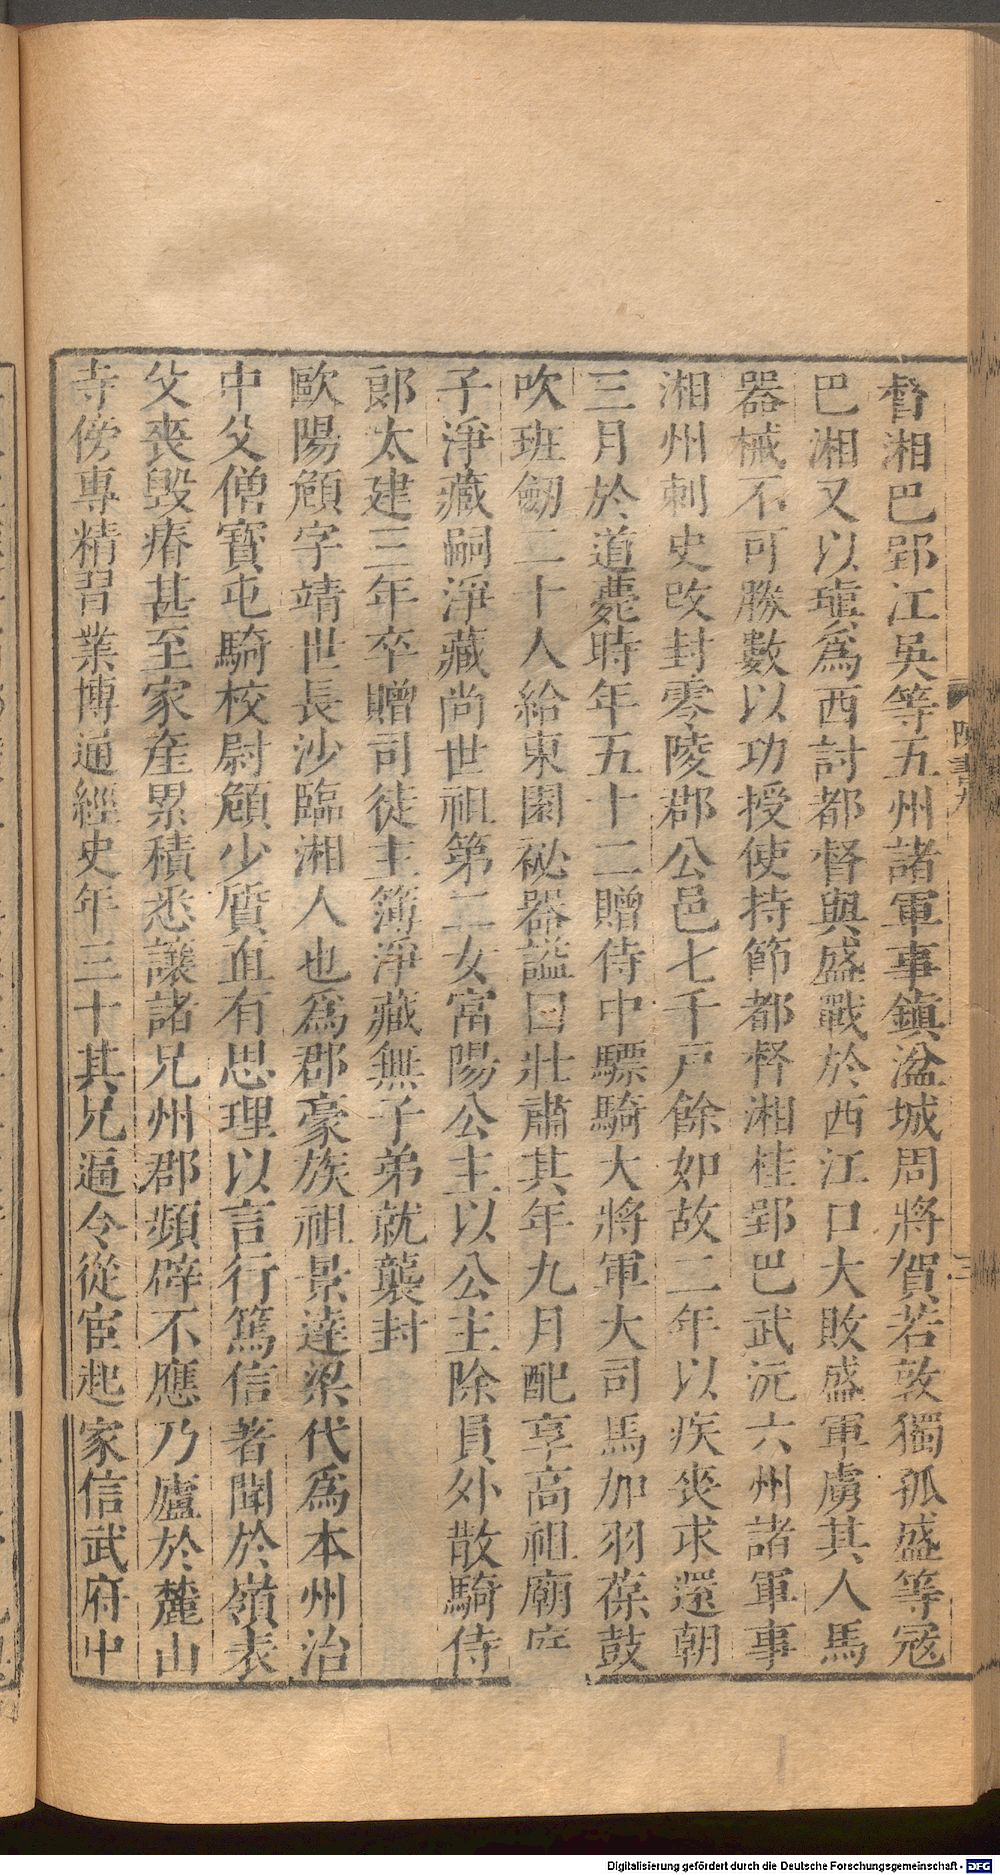 督湘巴郢江吳等五州諸軍事鎮湓城周將賀若敦獨孤盛等寇
巴湘又以瑱爲西討都督與盛戰於西江口大敗盛軍虜其人馬
器械不可勝數以功授使持節都督湘桂郢巴武沅六州諸軍事
湘州刺史改封零陵郡公邑七千戸餘如故二年以疾表求還朝
三月於道薨時年五十二贈侍中驃騎大將軍大司馬加羽葆鼓
吹班劒二十人給東園祕器諡曰壯肅其年九月配享高祖廟庭
子淨藏嗣淨藏尚世祖第二女富陽公主以公主除員外散騎侍
郎太建三年卒贈司徒主簿淨藏無子弟就襲封
歐陽頠字靖世長沙臨湘人也爲郡豪族祖景達梁代爲本州治
中父僧寶屯騎校尉頠少質直有思理以言行篤信著聞於嶺表
父喪毀瘠甚至家產累積悉讓諸兄州郡頻辟不應乃廬於麓山
寺傍專精習業博通經史年三十其兄逼令從宦起家信武府中
陳書九
三
Digitalisierung gefördert durch die Deutsche Forschungsgemeinschaft - DFG